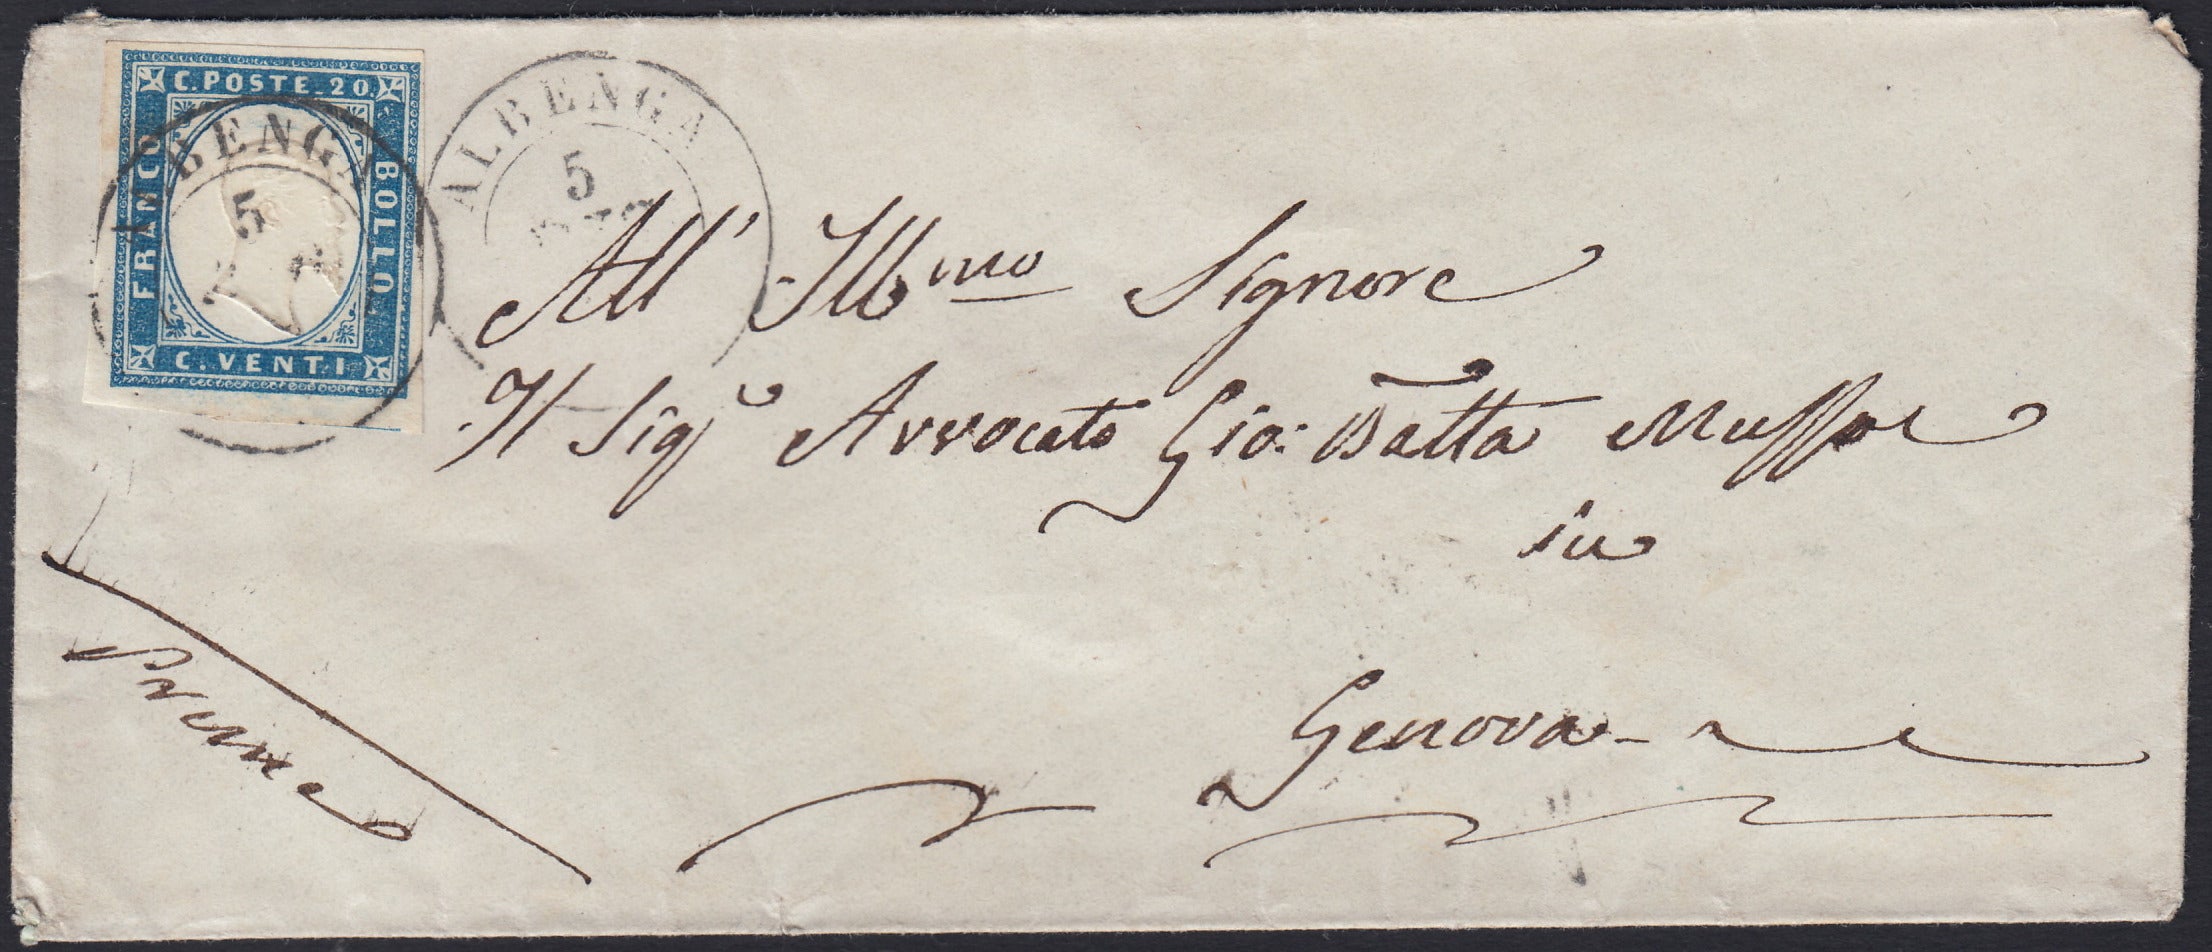 C. POSTE. 20.
FRANCO
BOLLO
C. VENTI
ALBENGA
5
ALBENGA
5
All' Ill.mo Signore
Il Sigr Avvocato Gio: Batta
in
Genova